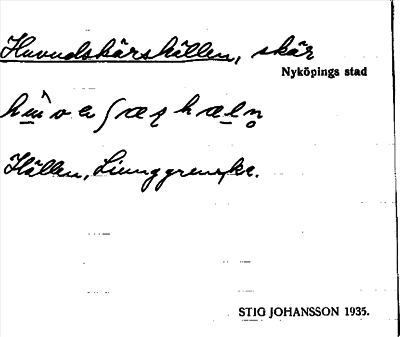 Huvudskärshällen, skär
Nyköpings stad
Hällen, Ljunggrenska.
STIG JOHANSSON 1935.